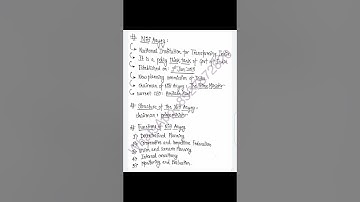 # NITI Aayog :
National Institution for Transforming India
It is a policy think tank of Govt of India
Established on : 1st Jan 2015
New planning commission of India
Chairman of NITI Aayog : The Prime Minister
Current CEO :
# Structure of the NITI Aayog
Chairman : Prime Minister
# Functions of NITI Aayog
1) Decentralized Planning
2) Cooperative and Competitive Federalism
3) Vision and Scenario Planning
4) Internal Consultancy
5) Monitoring and Evaluation